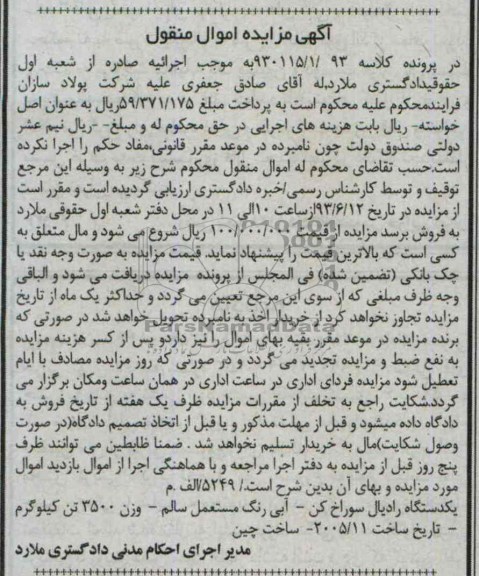 آگهی مزایده اموال منقول
در پرونده کلاسه ۹۳ /۹۳۰۱۱۵/۱به موجب اجرائیه صادره از شعبه اول
حقوقیدادگستری ملارد,له آقای صادق جعفری علیه شرکت پولاد سازان
فرایندمحکوم علیه محکوم است به پرداخت مبلغ ۵۹/۳۷۱/۱۷۵ریال به عنوان اصل
خواسته- ریال بابت هزینه های اجرایی در حق محکوم له و مبلغ- -ریال نیم عشر
دولتی صندوق دولت چون نامبرده در موعد مقرر قانونی,مفاد حکم را اجرا نکرده
است.حسب تقاضای محکوم له اموال منقول محکوم شرح زیر به وسیله این مرجع
توقیف و توسط کارشناس رسمی/خبره دادگستری ارزیابی گردیده است و مقرر است
از مزایده در تاریخ ۹۳/۶/۱۲ازساعت ۱۰الی ۱۱ در محل دفتر شعبه اول حقوقی ملارد
به فروش برسد مزایده از قیمت ۱۰۰/۰۰۰/۰۰۰ ریال شروع می شود و مال متعلق به
کسی است که بالاترین قیمت را پیشنهاد نماید. قیمت مزایده به صورت وجه نقد یا
چک بانکی (تضمین شده) فی المجلس از برنده مزایده دریافت می شود و الباقی
وجه ظرف مبلغی که از سوی این مرجع تعیین می گردد و حداکثر یک ماه از تاریخ
مزایده تجاوز نخواهد کرد از خریدار اخذ به نامبرده تحویل خواهد شد در صورتی که
برنده مزایده در موعد مقرر بقیه بهای اموال را نپر دازدو پس از کسر هزینه مزایده
به نفع ضبط و مزایده تجدید می گردد و در صورتی که روز مزایده مصادف با ایام
تعطیل شود مزایده فردای اداری در ساعت اداری در همان ساعت ومکان برگزار می
گردد.شکایت راجع به تخلف از مقررات مزایده ظرف یک هفته از تاریخ فروش به
دادگاه داده میشود و قبل از مهلت مذکور و یا قبل از اتخاذ تصمیم دادگاه(در صورت
وصول شکایت)مال به خریدار تسلیم نخواهد شد . ضمنا ظابطین می توانند ظرف
پنج روز قبل از مزایده به دفتر اجرا مراجعه و با هماهنگی اجرا از اموال بازدید اموال
مورد مزایده و بهای آن بدین شرح است./ ۵۲۴۹/الف .م
یکدستگاه رادیال سوراخ کن - آبی رنگ مستعمل سالم - وزن ۳۵۰۰ تن کیلوگرم
- تاریخ ساخت ۲۰۰۵/۱۱- ساخت چین
مدیر اجرای احکام مدنی دادگستری ملارد
ParsNamadData